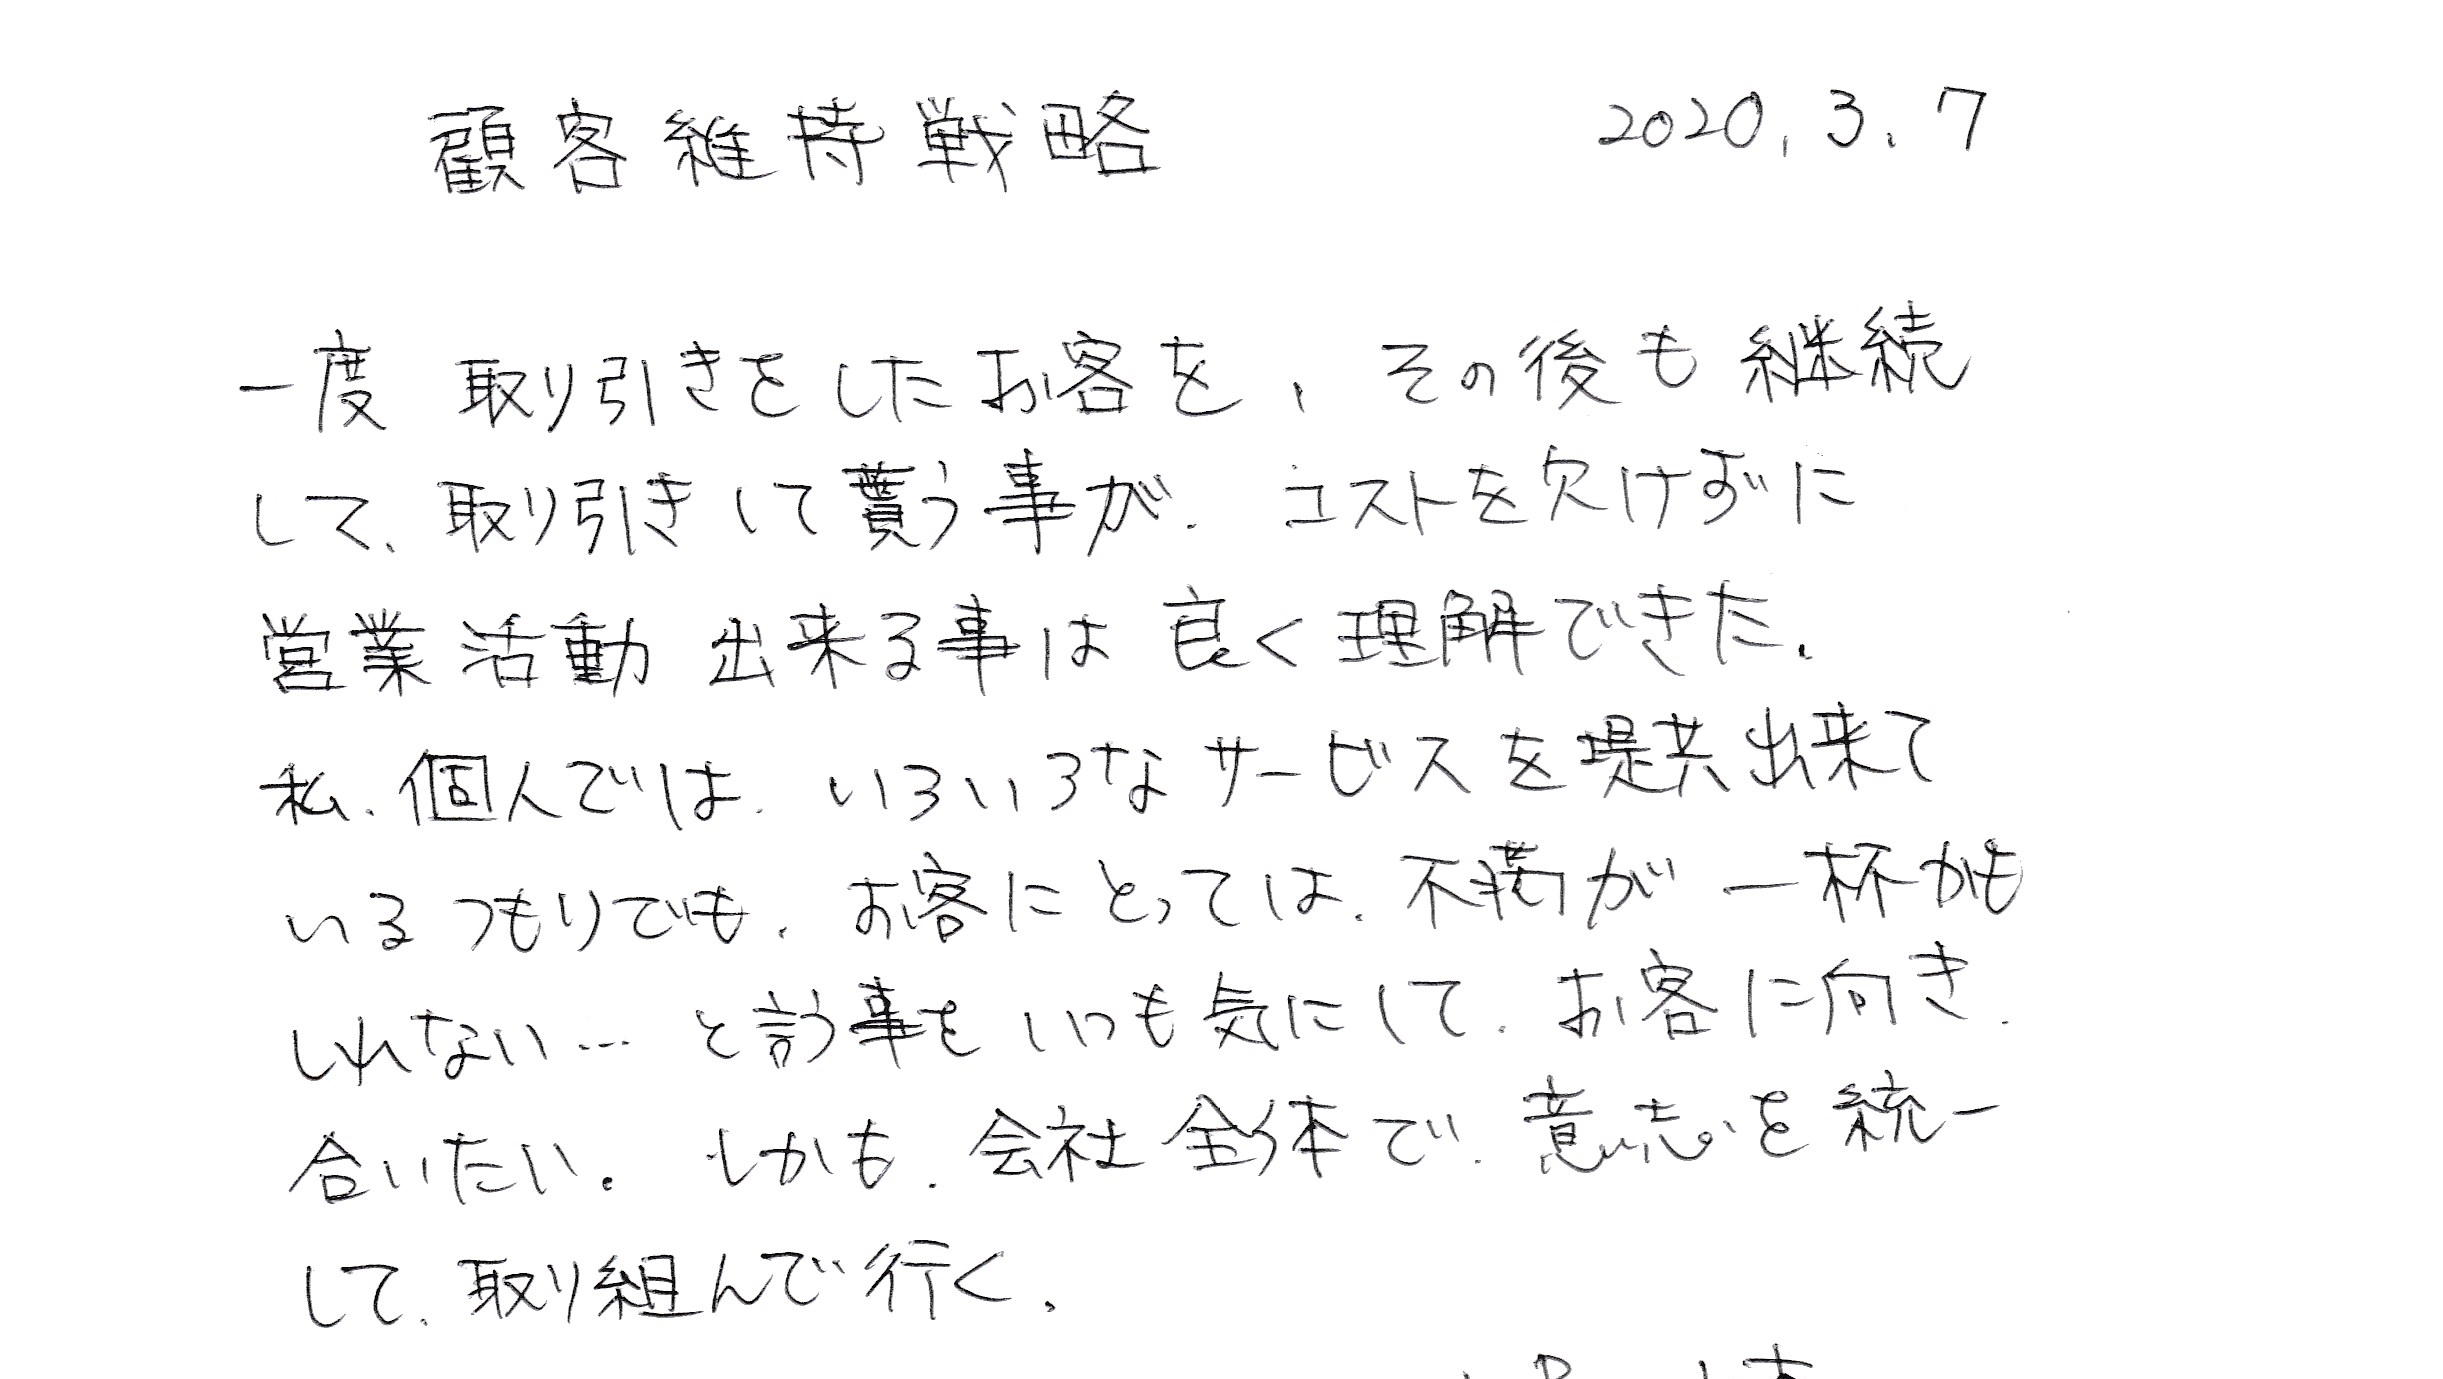 顧客維持戦略 2020.3.7
一度 取り引きをしたお客を、その後も継続
して、取り引きして貰う事が、コストを欠けずに
営業活動 出来る事は 良く理解できた。
私、個人では、いろいろなサービスを提共出来て
いるつもりでも、お客にとっては、不満が一杯かも
しれない… と言う事をいつも気にして、お客に向き
合いたい。しかも、会社全体で、意志を統一
して、取り組んで行く。